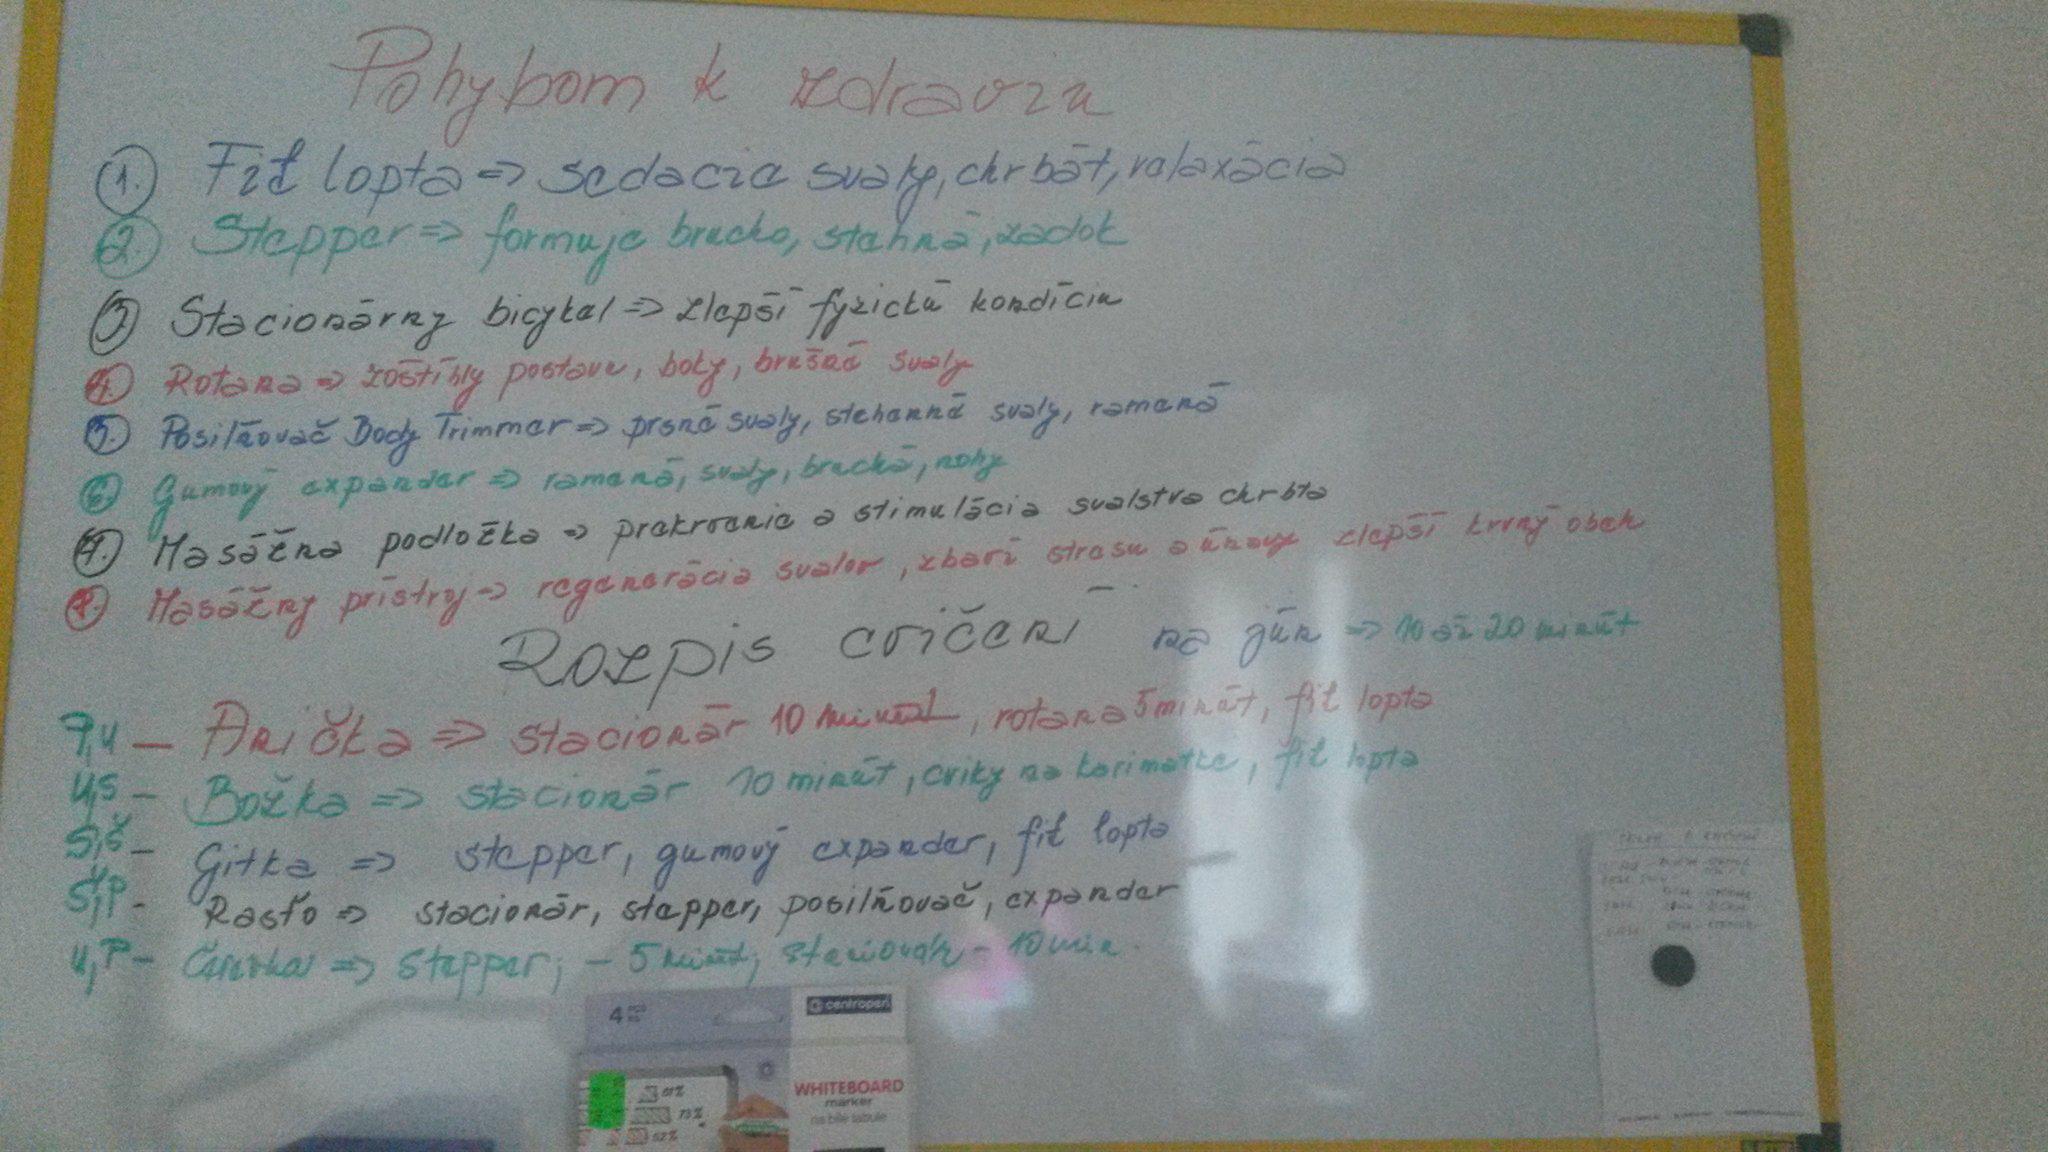 Pohybom k zdraviu
1. Fit lopta => sedacie svaly, chrbát, relaxácia
2. Stepper => formuje brucho, stehná, zadok
3 Stacionárny bicykel => zlepší fyzickú kondíciu
4. Rotana => zoštíhly postavu, boky, brušné svaly
5. Posilňovač Body Trimmer => prsné svaly, stehenné svaly, ramená
6. Gumový expander => ramená, svaly, bruchá, nohy
7. Masážna podložka => prekrvenie a stimulácia svalstva chrbta
8. Masážny prístroj => regenerácia svalov, zbaví stresu a únavy zlepší krvný obeh
Rozpis cvičení na jún => 10 až 20 minút
P,U - Anička => stacionár 10 minút, rotana 5 minút, fit lopta
U,S - Božka => stacionár 10 minút, cviky na karimatke, fit lopta
S,Š - Gitka => stepper, gumový expander, fit lopta
Š,P - Rasťo => stacionár, stepper, posilňovač, expander
U,P - => stepper, - 5 minút, - 10 min.
4
centropen
WHITEBOARD
marker
na bílé tabule
61%
73%
52%